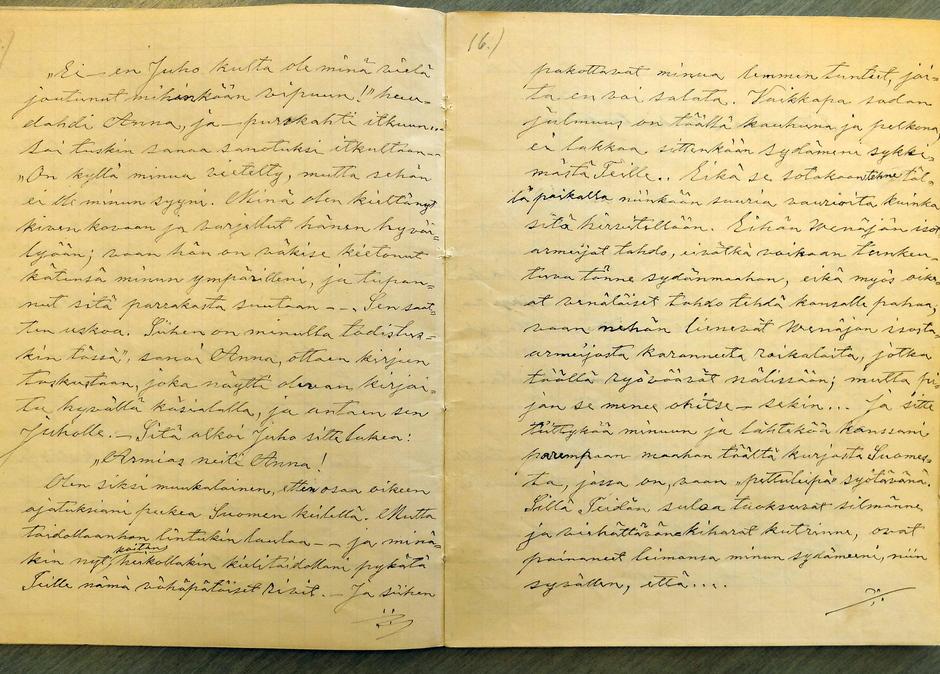 „Ei – en Juho kulta ole minä vielä
joutunut mihinkään vipuun!" huu-
dahdi Anna, ja – purskahti itkuun...
Sai tuskin sanaa sanotuksi itkultaan...
„On kyllä minua vietelty, mutta sehän
ei ole minun syyni. Minä olen kieltänyt
kiven kovaan ja varjellut hänen hyväi-
lyään; vaan hän on väkise kietonut
kätensä minun ympäritteni, ja tupan-
nut sitä parrakasta suutaan – –. Sen saat-
ten uskoa. Siihen on minulla todistus-
kin tässä", sanoi Anna, ottaen kirjeen
taskustaan, joka näytti olevan kirjoi-
tu hyvällä käsialalla, ja antaen sen
Juholle. – Sitä alkoi Juho sitte lukea:
„Armias neiti Anna!
Olen siksi muukalainen, etten osaa oikeen
ajatuksiani pukea Suomen kielellä. Mutta
taidollaanhan lintukin laulaa – – ja minä-
kin nyt, koitan heikollakin kielitaidollani pykätä
Teille nämä vähäpätöiset rivit. – Ja siihen
16.)
pakottavat minua lemmen tunteet, joi-
ta en voi salata. Vaikkapa sodan
julmuus on täällä kauhuna ja pelkona,
ei lakkaa sittenkään sydämeni sykki-
mästä Teille.. Eikä se sotakaan tehne täl-
lä paikalla niinkään suuria vaurioita kuinka
sitä hirvitellään. Eihän Wenäjän isot
armeijat tahdo, eivätkä voikaan tunkeu-
tuva tänne sydänmaahan, eikä myös oike-
at venäläiset tahdo tehdä kansalle pahaa,
vaan nehän lienevät Wenäjän isosta-
armeijasta karanneita roikaleita, jotka
täällä ryöväävät nälissään; mutta pi-
jan se menee ohitse – sekin... Ja sitte
tüttykää minuun ja lähtekää kanssani
parempaan maahan täältä kurjasta Suomes-
ta, jossa on, vaan „pettuleipä" syötävänä.
Sillä Teidän suloa tuoksuvat silmänne,
ja viehättävän kiharat kutrinne, ovat
painaneet leimansa minun sydämeeni, niin
syvälten, että....